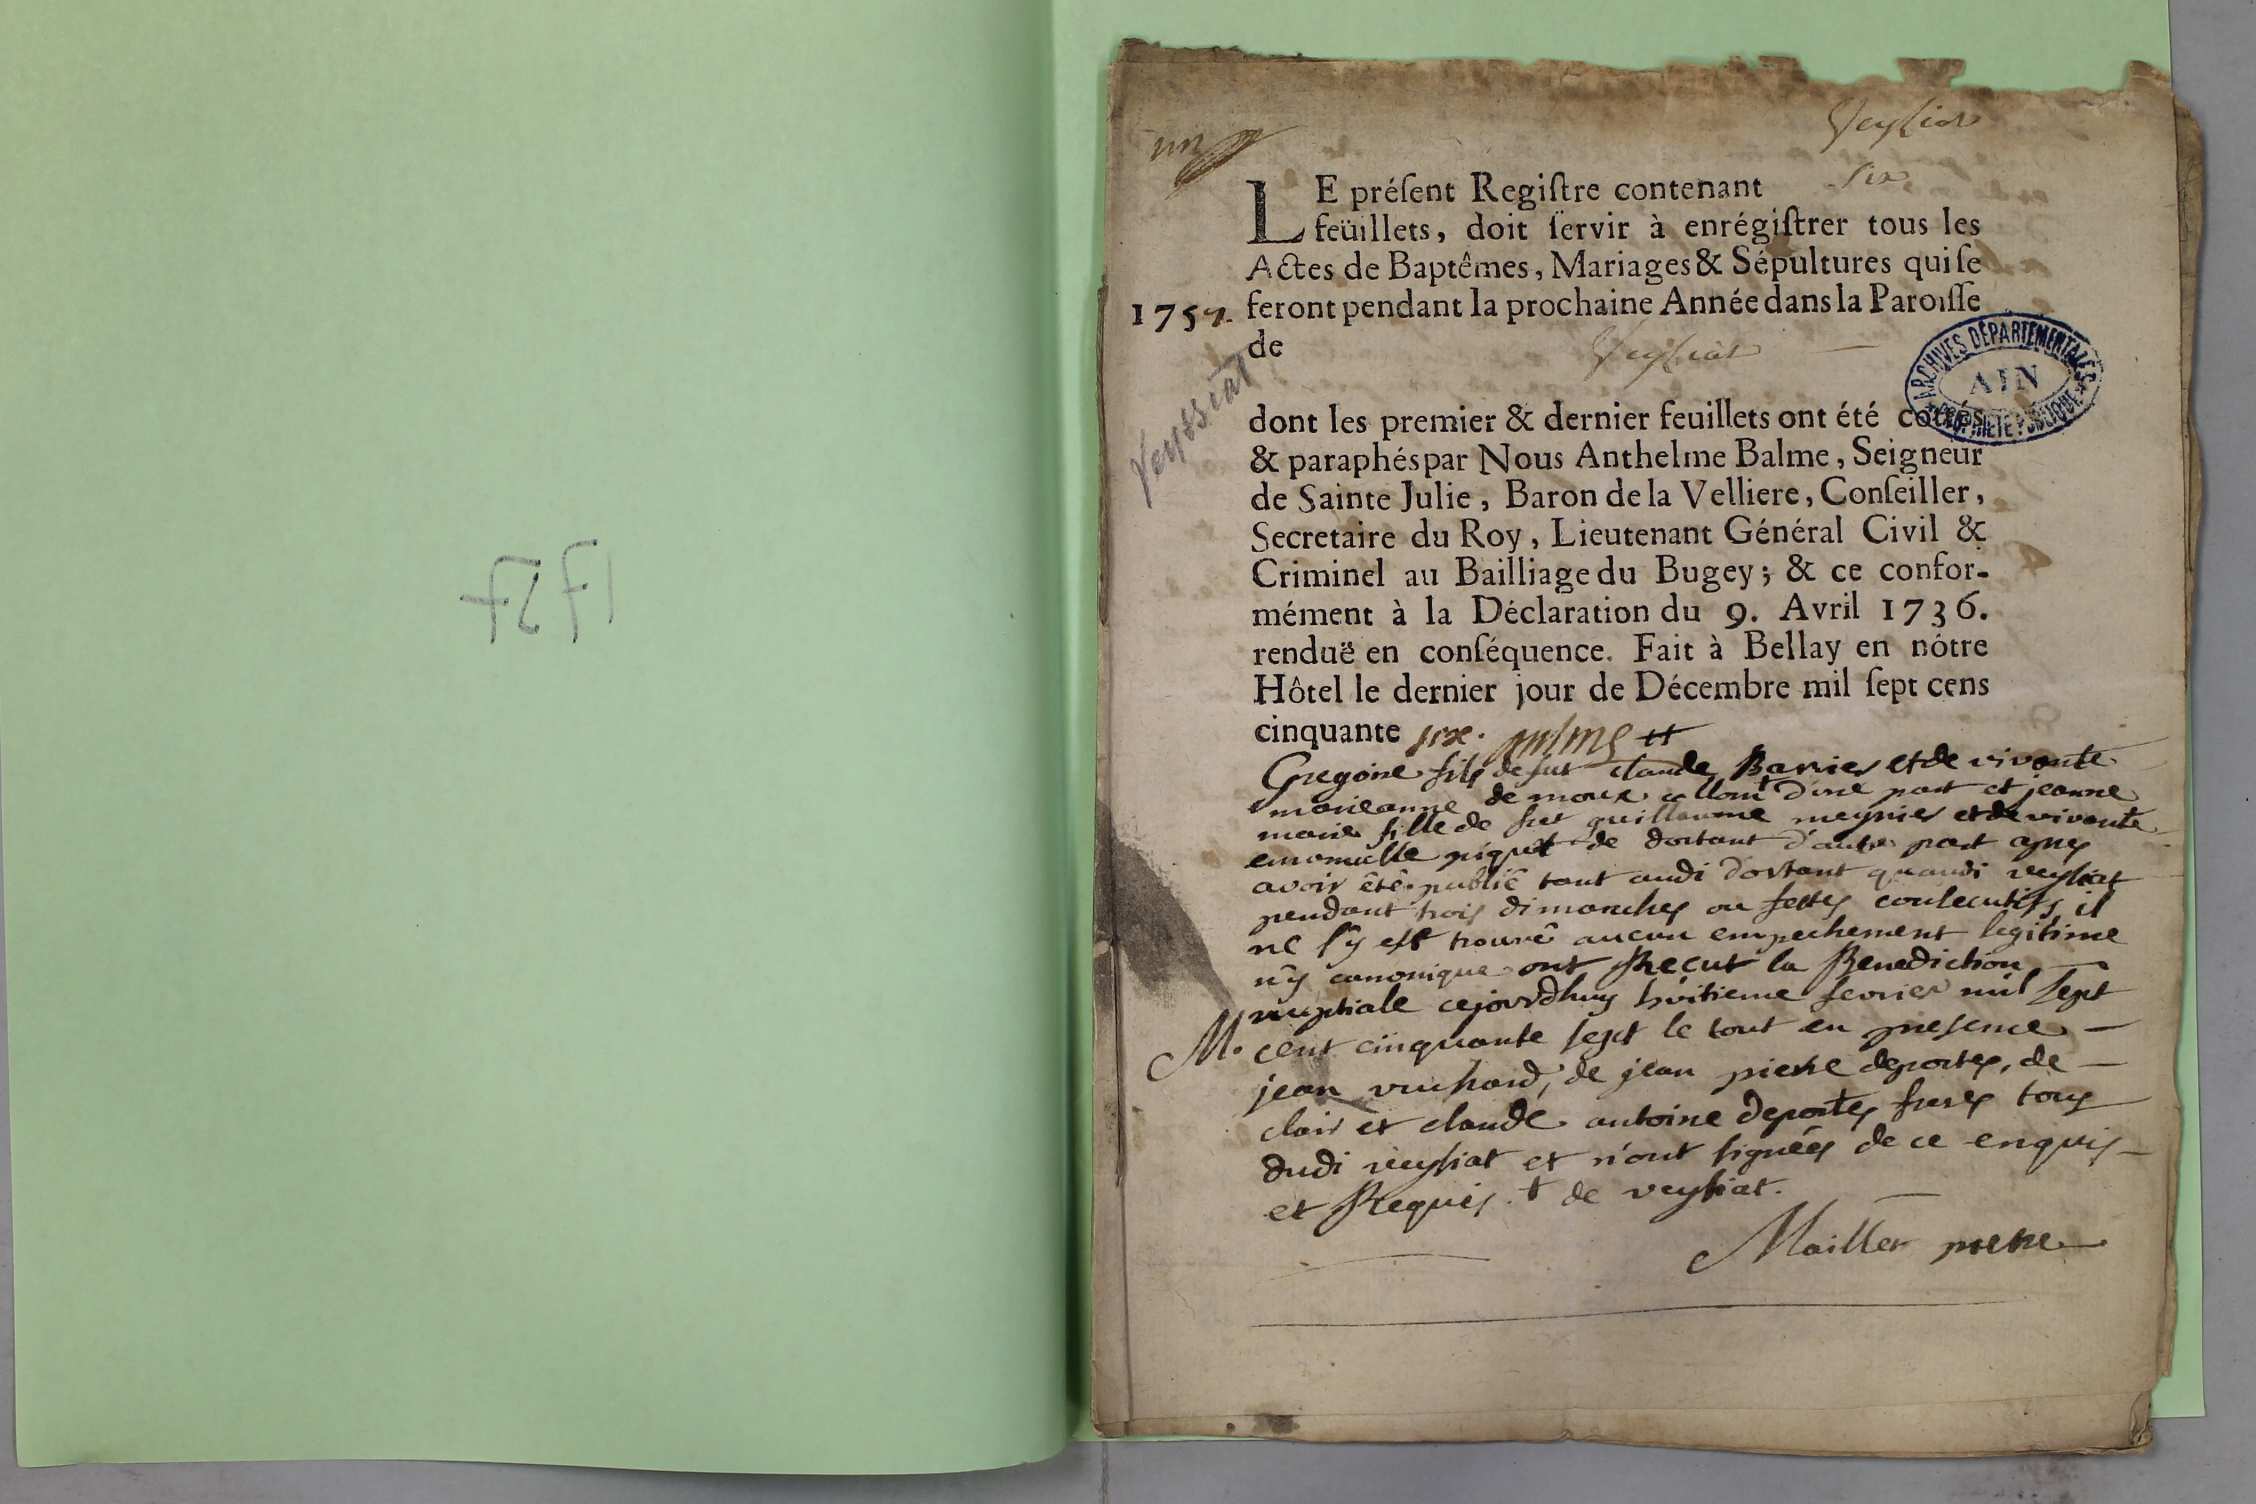 1757
un
Veysiat
six
LE préſent Regiſtre contenant
feüillets, doit ſervir à enrégiſtrer tous les
Actes de Baptêmes, Mariages & Sépultures qui ſe
1757. feront pendant la prochaine Année dans la Paroiſſe
de Veysiat
Veyssiat
ARCHIVES DÉPARTEMENTALES
AIN
PROPRIÉTÉ PUBLIQUE
dont les premier & dernier feuillets ont été cottés
& paraphés par Nous Anthelme Balme, Seigneur
de Sainte Julie, Baron de la Velliere, Conſeiller,
Secretaire du Roy, Lieutenant Général Civil &
Criminel au Bailliage du Bugey; & ce confor-
mément à la Déclaration du 9. Avril 1736.
renduë en conſéquence. Fait à Bellay en nôtre
Hôtel le dernier jour de Décembre mil ſept cens
cinquante six.
Gregoire fils de fut claude Barrier et de vivante
marieanne de moux d'une part et jeanne
marie fille de fut guillaume meynier et de vivante
piquet de dortant d'autre part apres
avoir êtê publiê tant audi dortant quaudi veysiat
pendant trois dimanches ou festes consecutifs il
ne s'y est trouvê aucun empechement legitime
n'y canonique ont Reçut la Benediction
nuptiale cejourdhuy huitieme fevrier mil sept
M. cent cinquante sept le tout en presence
jean vuchard, de jean pierre deportes, de
clair et claude antoine deportes freres tous
dudi veysiat et n'ont signées de ce enquis
et Requis. + de veysiat.
Maillet pretre